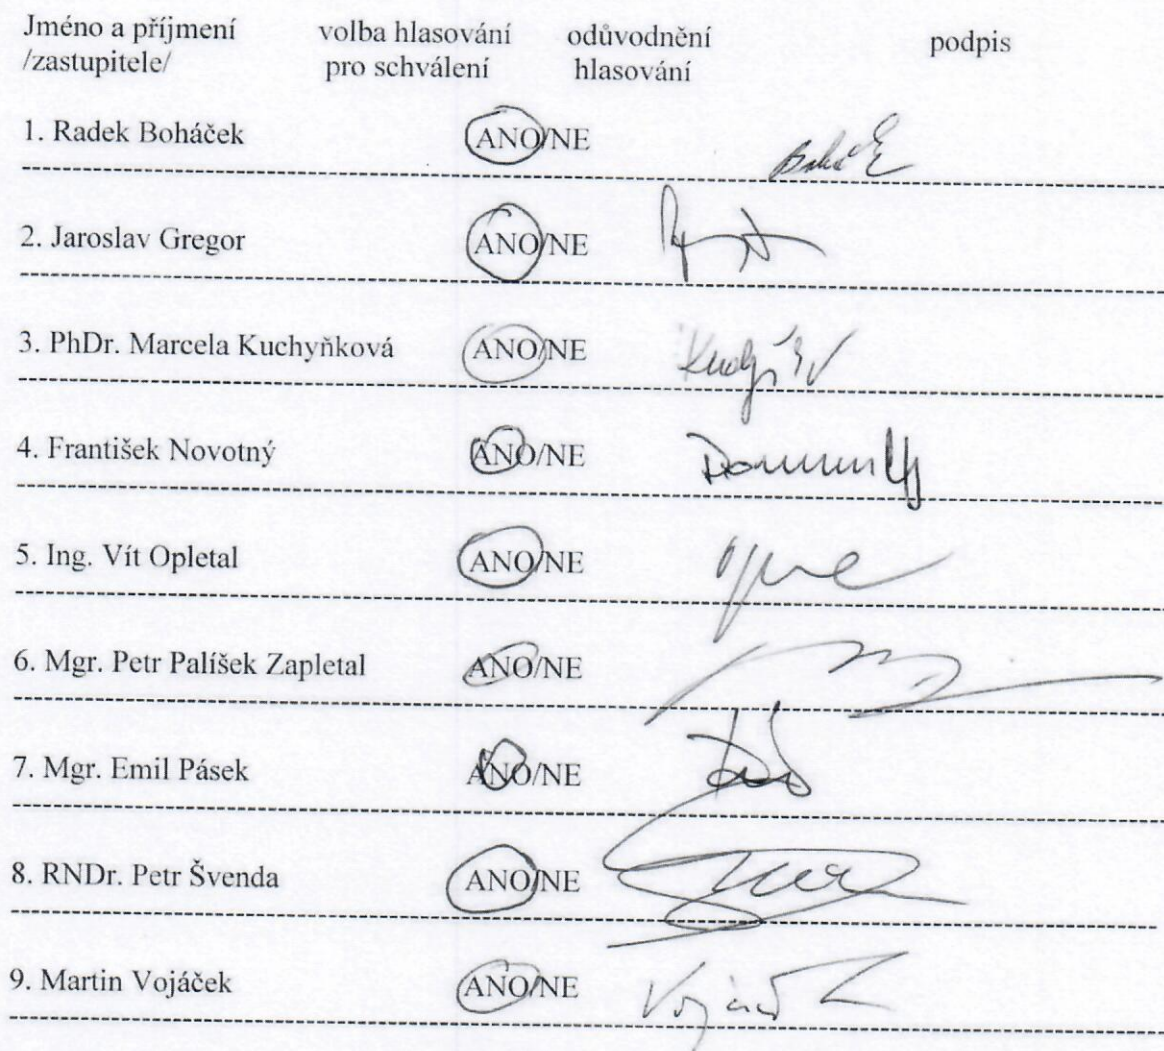 Jméno a příjmení volba hlasování odůvodnění podpis
/zastupitele/ pro schválení hlasování
1. Radek Boháček ANO/NE
2. Jaroslav Gregor ANO/NE
3. PhDr. Marcela Kuchyňková ANO/NE
4. František Novotný ANO/NE
5. Ing. Vít Opletal ANO/NE
6. Mgr. Petr Palíšek Zapletal ANO/NE
7. Mgr. Emil Pásek ANO/NE
8. RNDr. Petr Švenda ANO/NE
9. Martin Vojáček ANO/NE